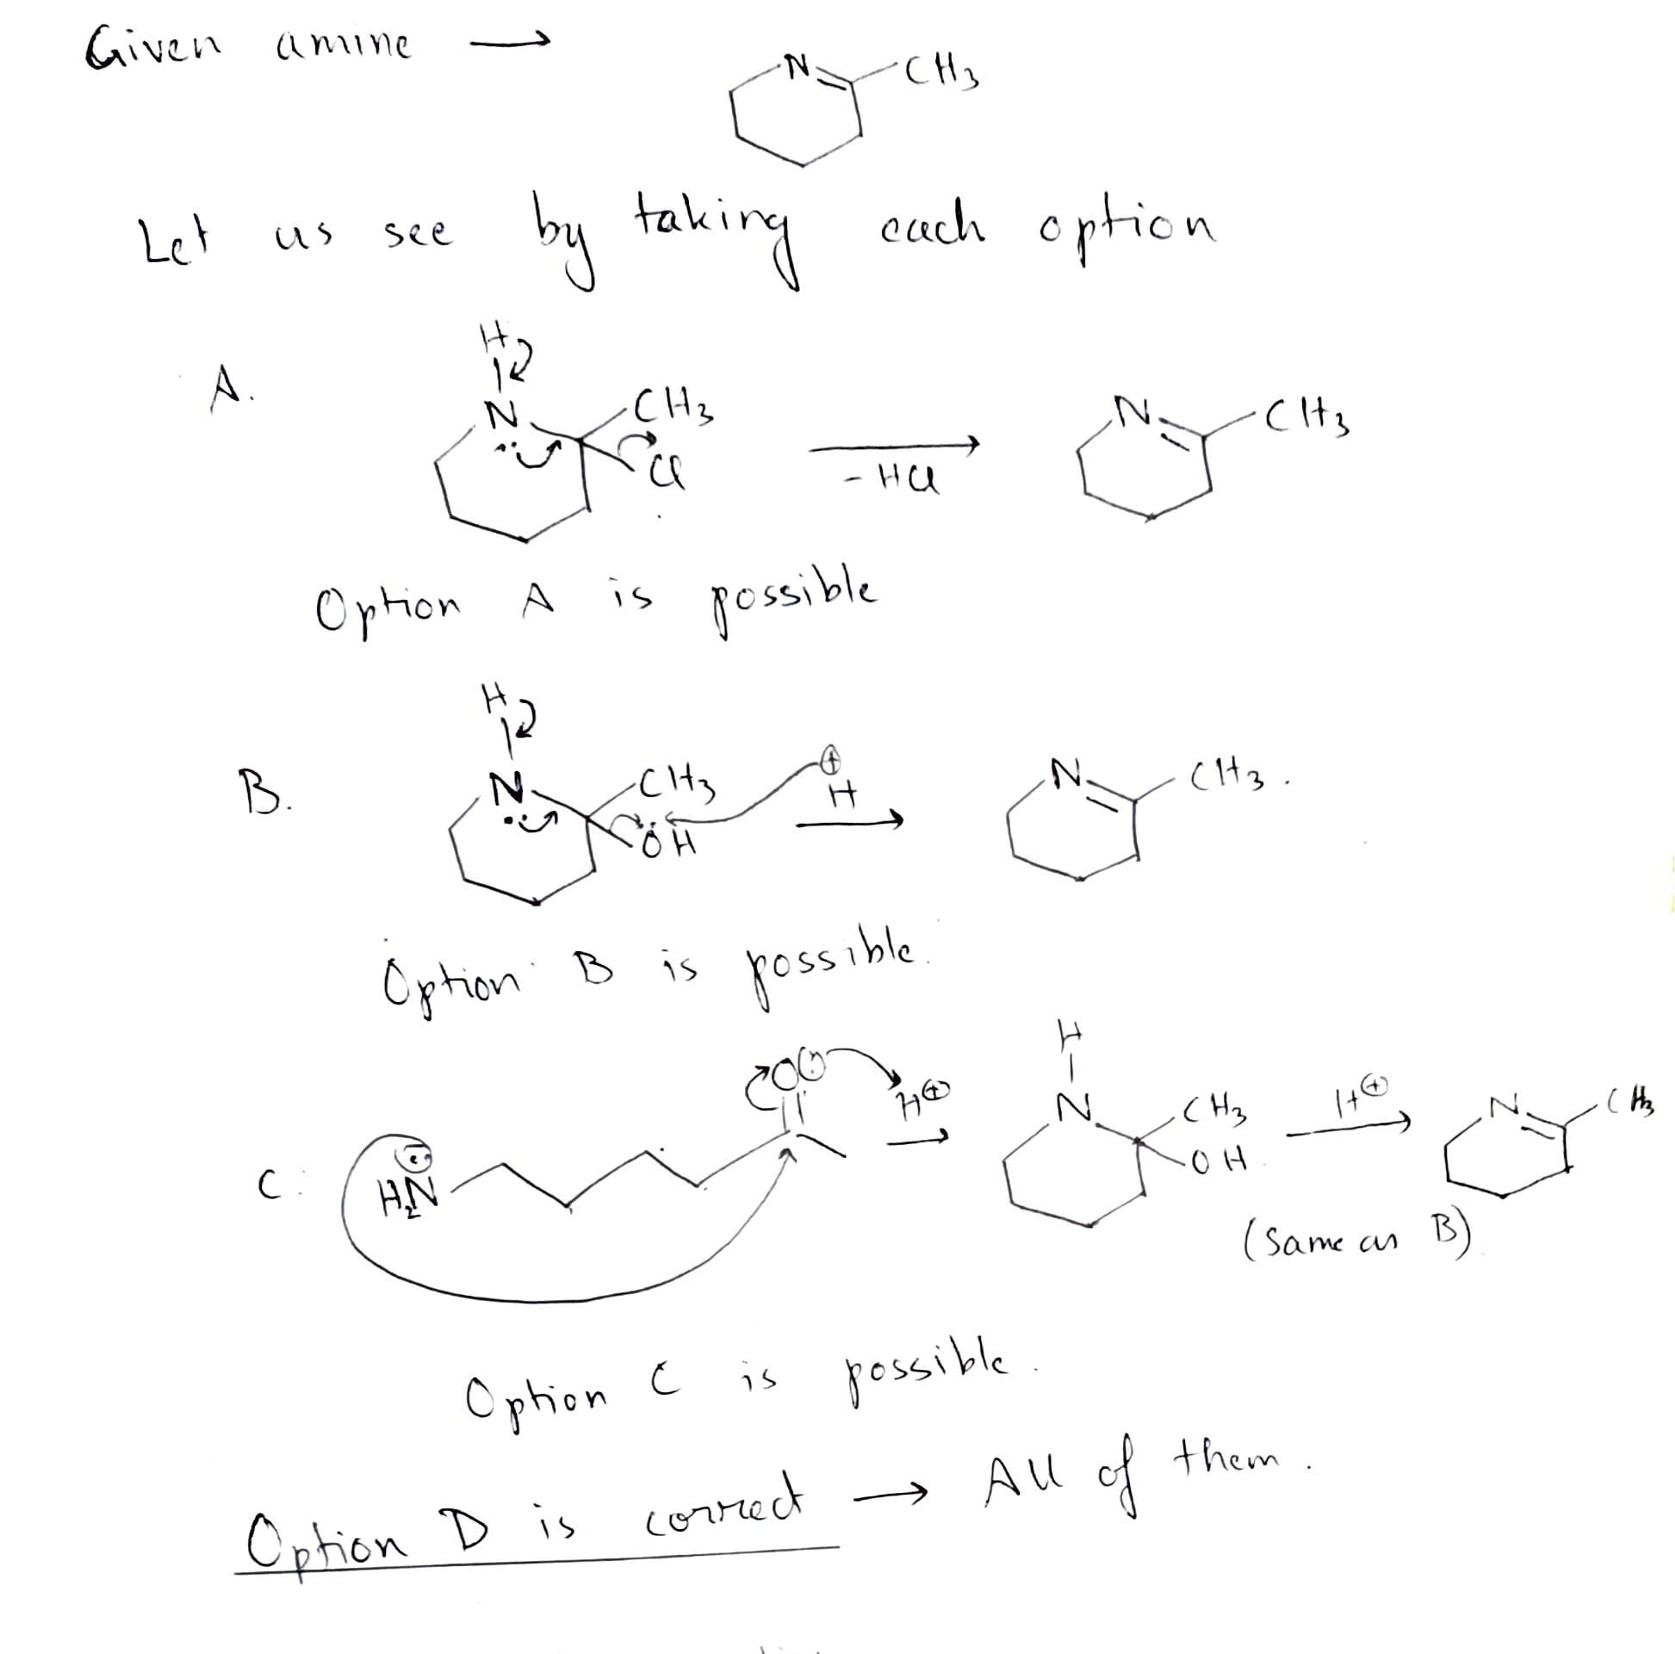 Given amine →
N CH3
Let us see by taking each option
H
A. N CH3 Cl -HCl N CH3
Option A is possible
H
B. N CH3 ÖH ⊕ H N CH3.
Option B is possible.
H
C: H2N O H⊕ N CH3 OH H⊕ N CH3
(Same as B)
Option C is possible.
Option D is correct → All of them.